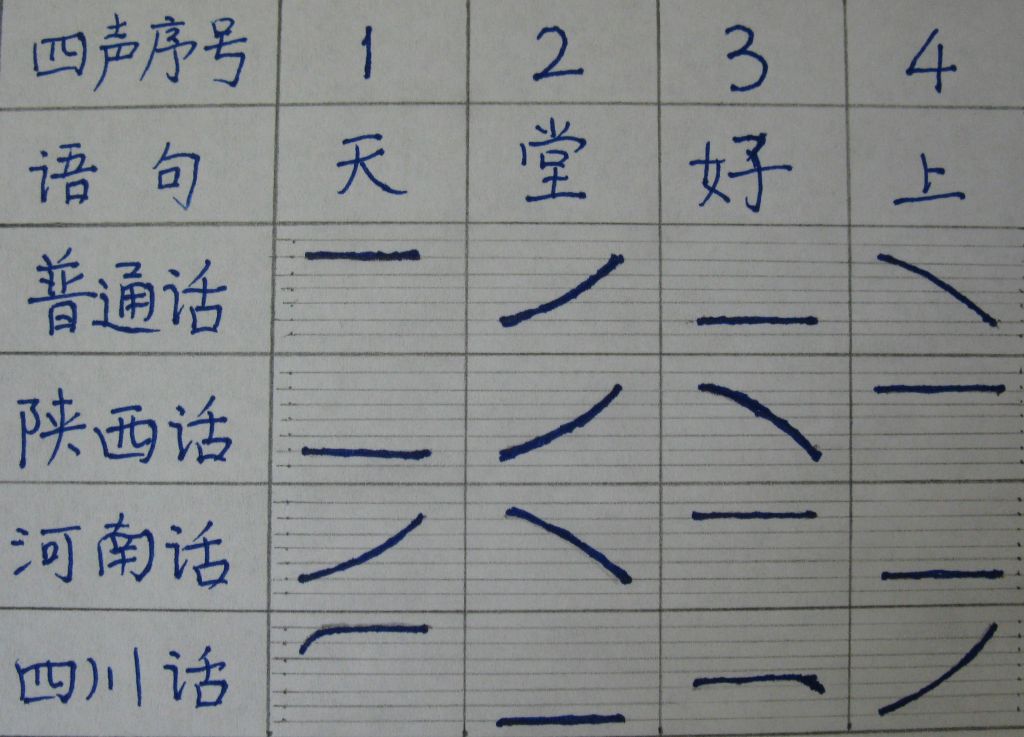 四声序号 1 2 3 4
语句 天 堂 好 上
普通话
陕西话
河南话
四川话